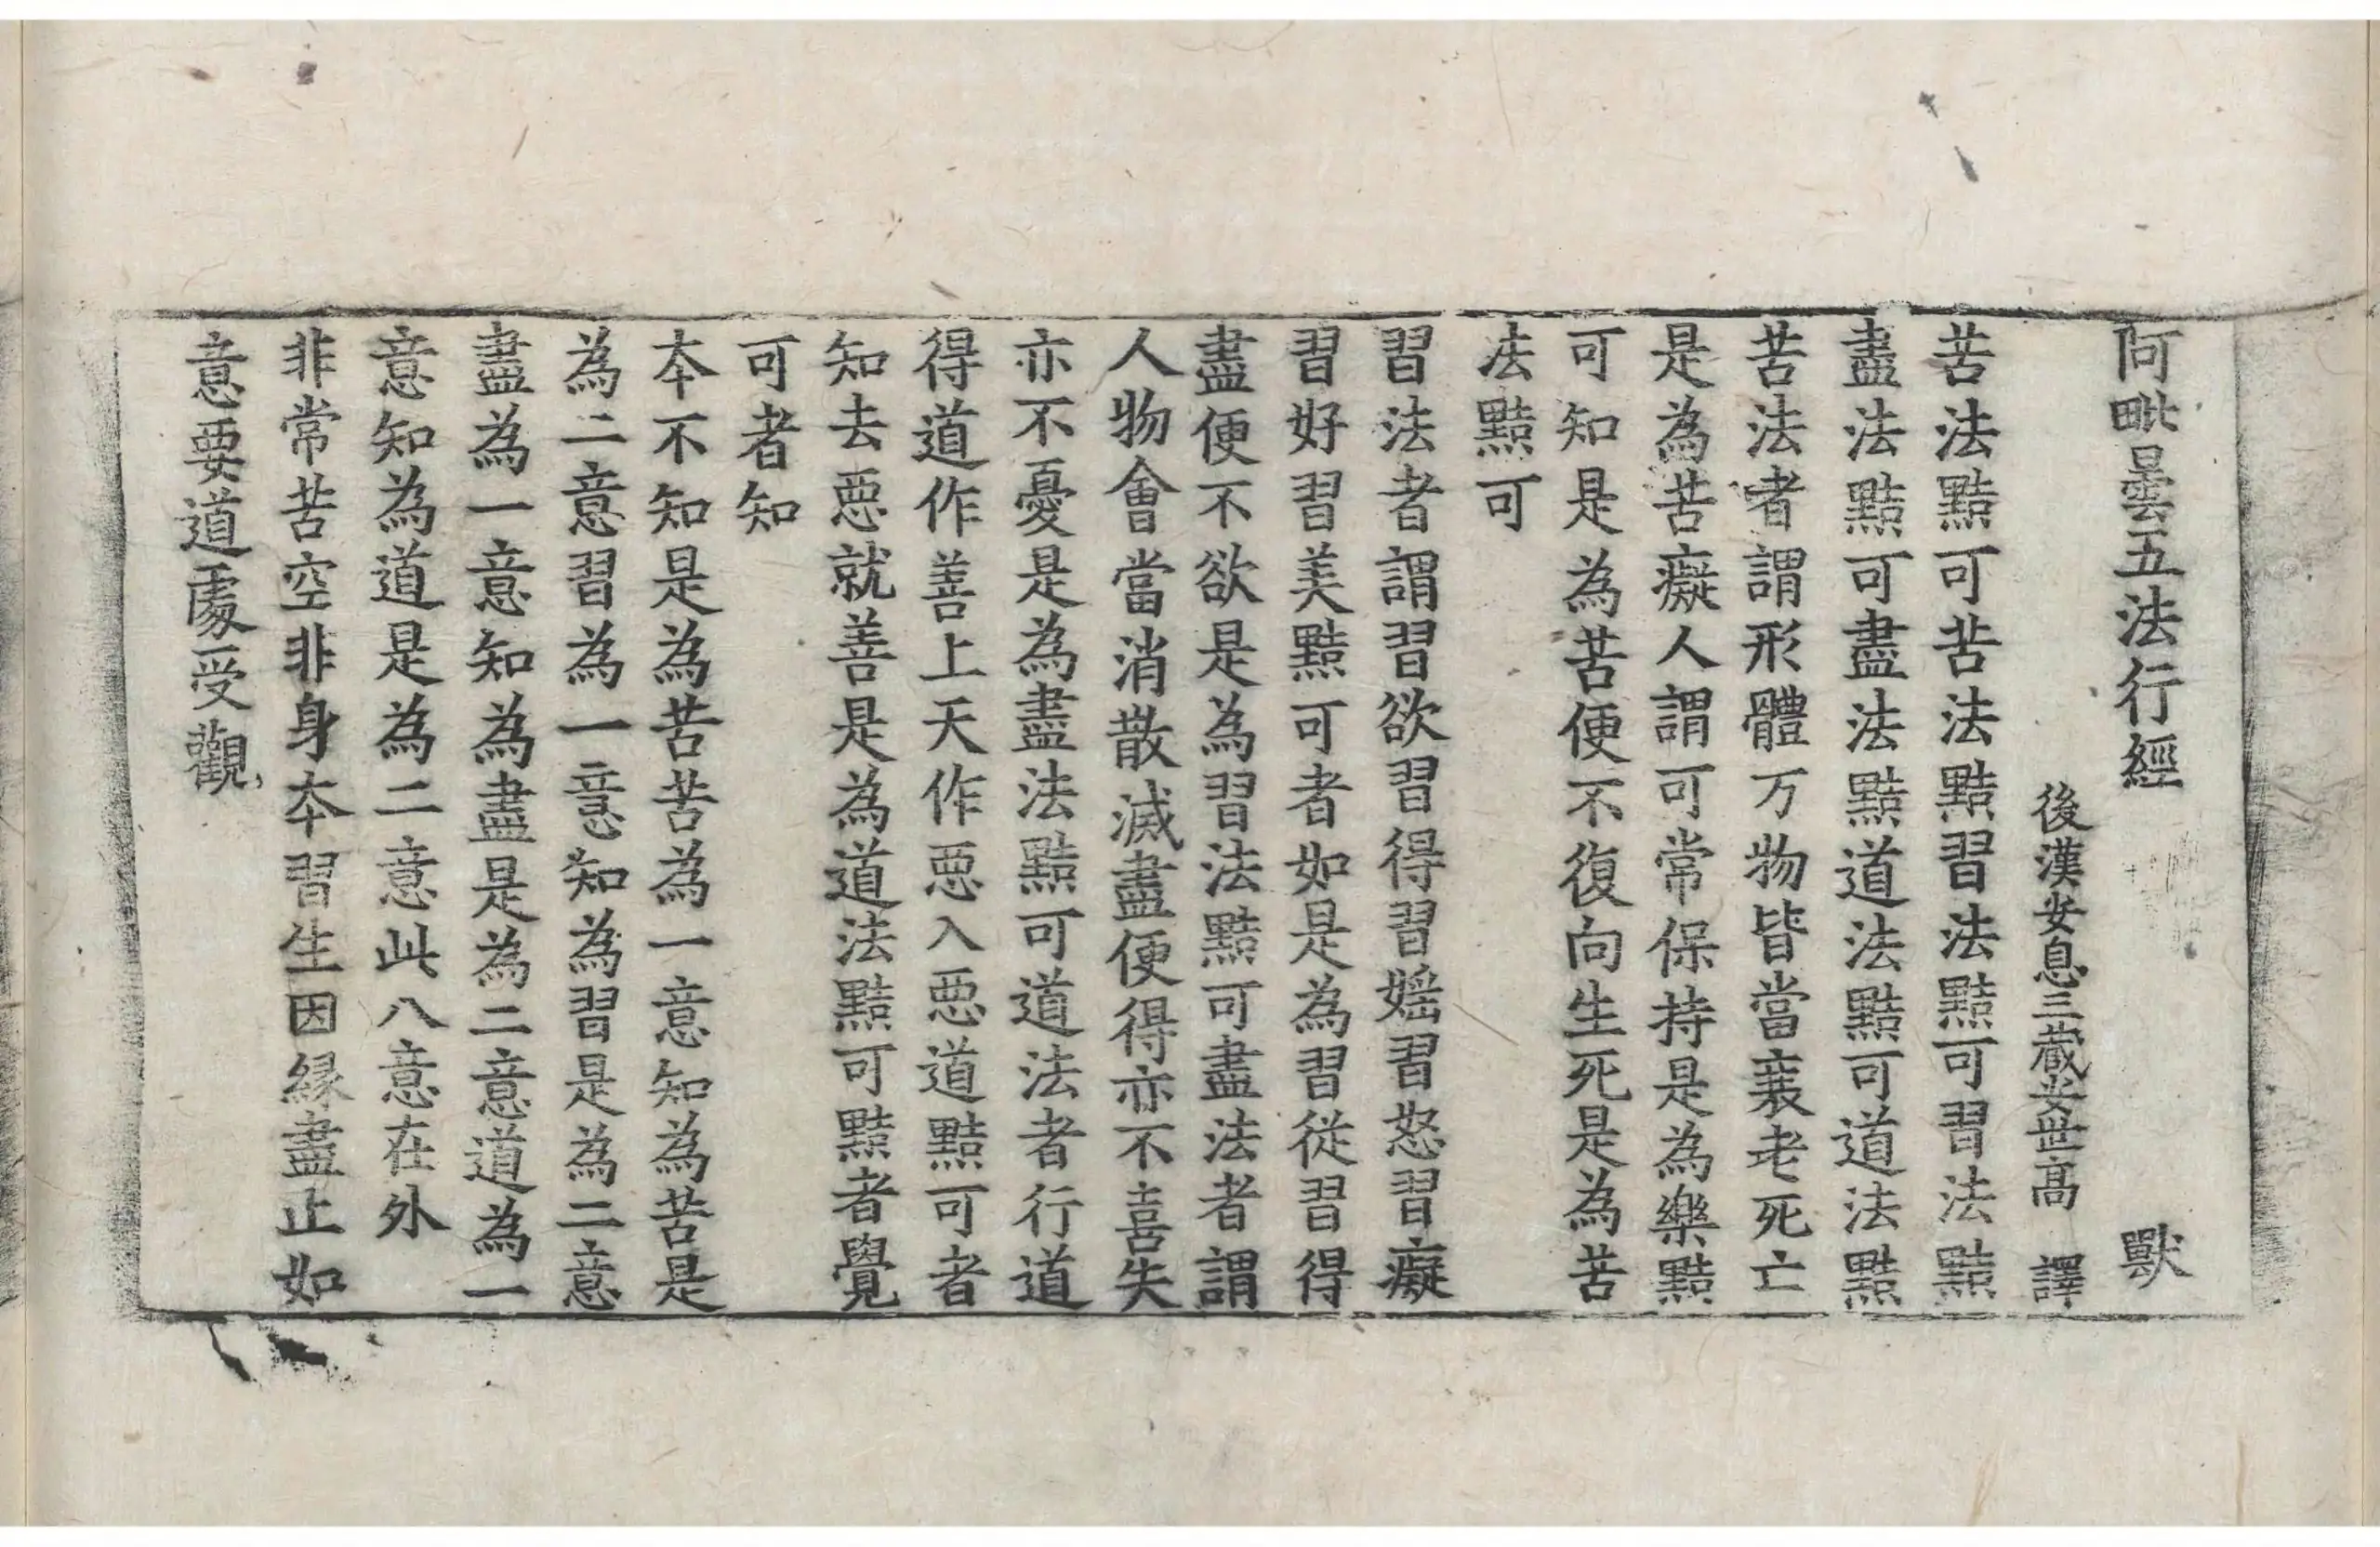 阿毗曇五法行經　獸
後漢安息三藏安世高　譯
苦法黠可苦法黠習法黠可習法黠
盡法黠可盡法黠道法黠可道法黠
苦法者謂形體万物皆當衰老死亡
是為苦癡人謂可常保持是為樂黠
可知是為苦便不復向生死是為苦
法黠可
習法者謂習欲習得習婬習怒習癡
習好習美黠可者如是為習從習得
盡便不欲是為習法黠可盡法者謂
人物會當消散滅盡便得亦不喜失
亦不憂是為盡法黠可道法者行道
得道作善上天作惡入惡道黠可者
知去惡就善是為道法黠可黠者覺
可者知
本不知是為苦苦為一意知為苦是
為二意習為一意知為習是為二意
盡為一意知為盡是為二意道為一
意知為道是為二意此八意在外
非常苦空非身本習生因緣盡止如
意要道處受觀